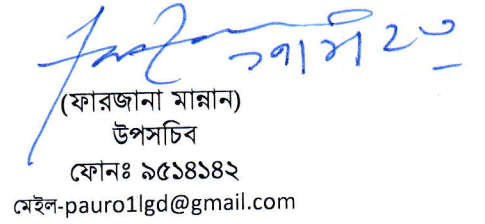 (ফারজানা মান্নান)
উপসচিব
ফোনঃ ৯৫১৪১৪২
মেইল-pauro1lgd@gmail.com